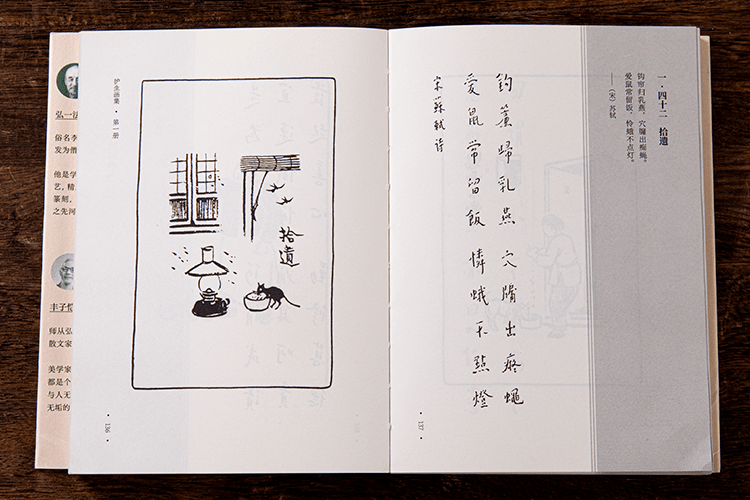 一·四十二 拾遗
钩帘归乳燕,穴牖出痴蝇。
爱鼠常留饭,怜蛾不点灯。
——(宋)苏轼
鈎簾歸乳燕穴牖出痴蠅
愛鼠常留飯憐蛾不點燈
宋蘇軾詩
·137·
护生画集·第一册
拾遺
·136·
弘一法
俗名李
发为僧
他是学
艺,精
篆刻,
之先河
丰子恺
师从弘
散文家
美学家
都是个
与人无
无垢的